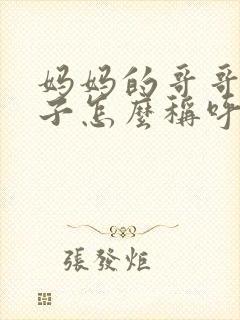 妈妈的哥哥
子怎麼稱呼
張發炬